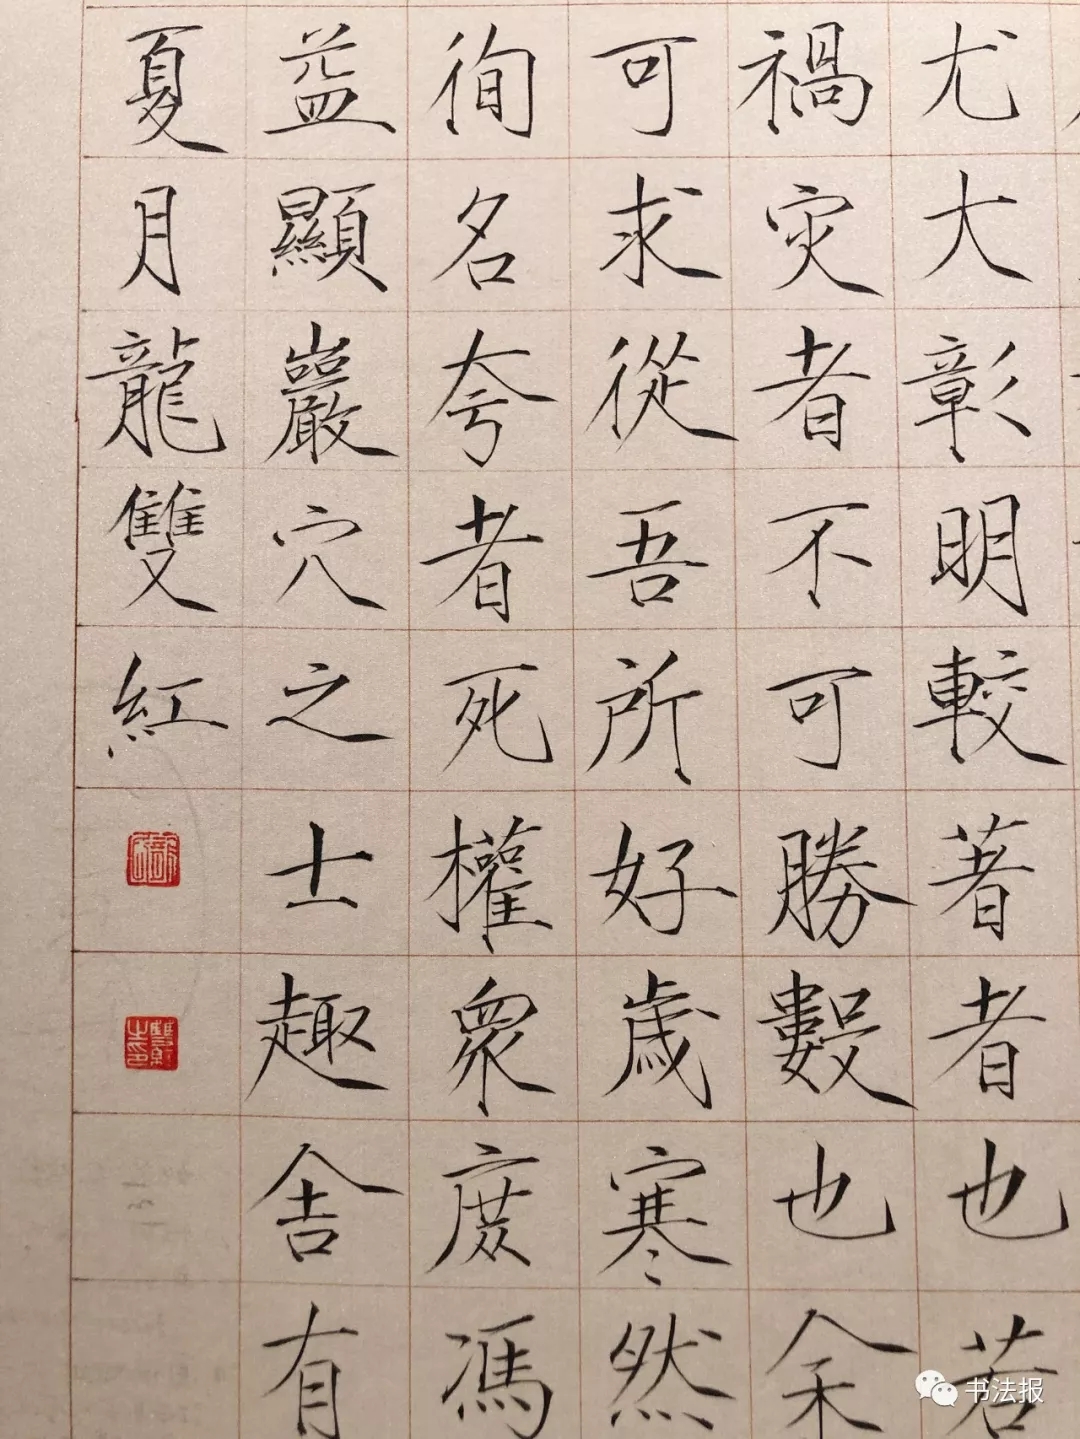 尤大彰明較著者也若
禍灾者不可勝數也余
可求從吾所好歲寒然
徇名夸者死權衆庶馮
益顯巖穴之士趣舍有
夏月龍雙紅
书法报